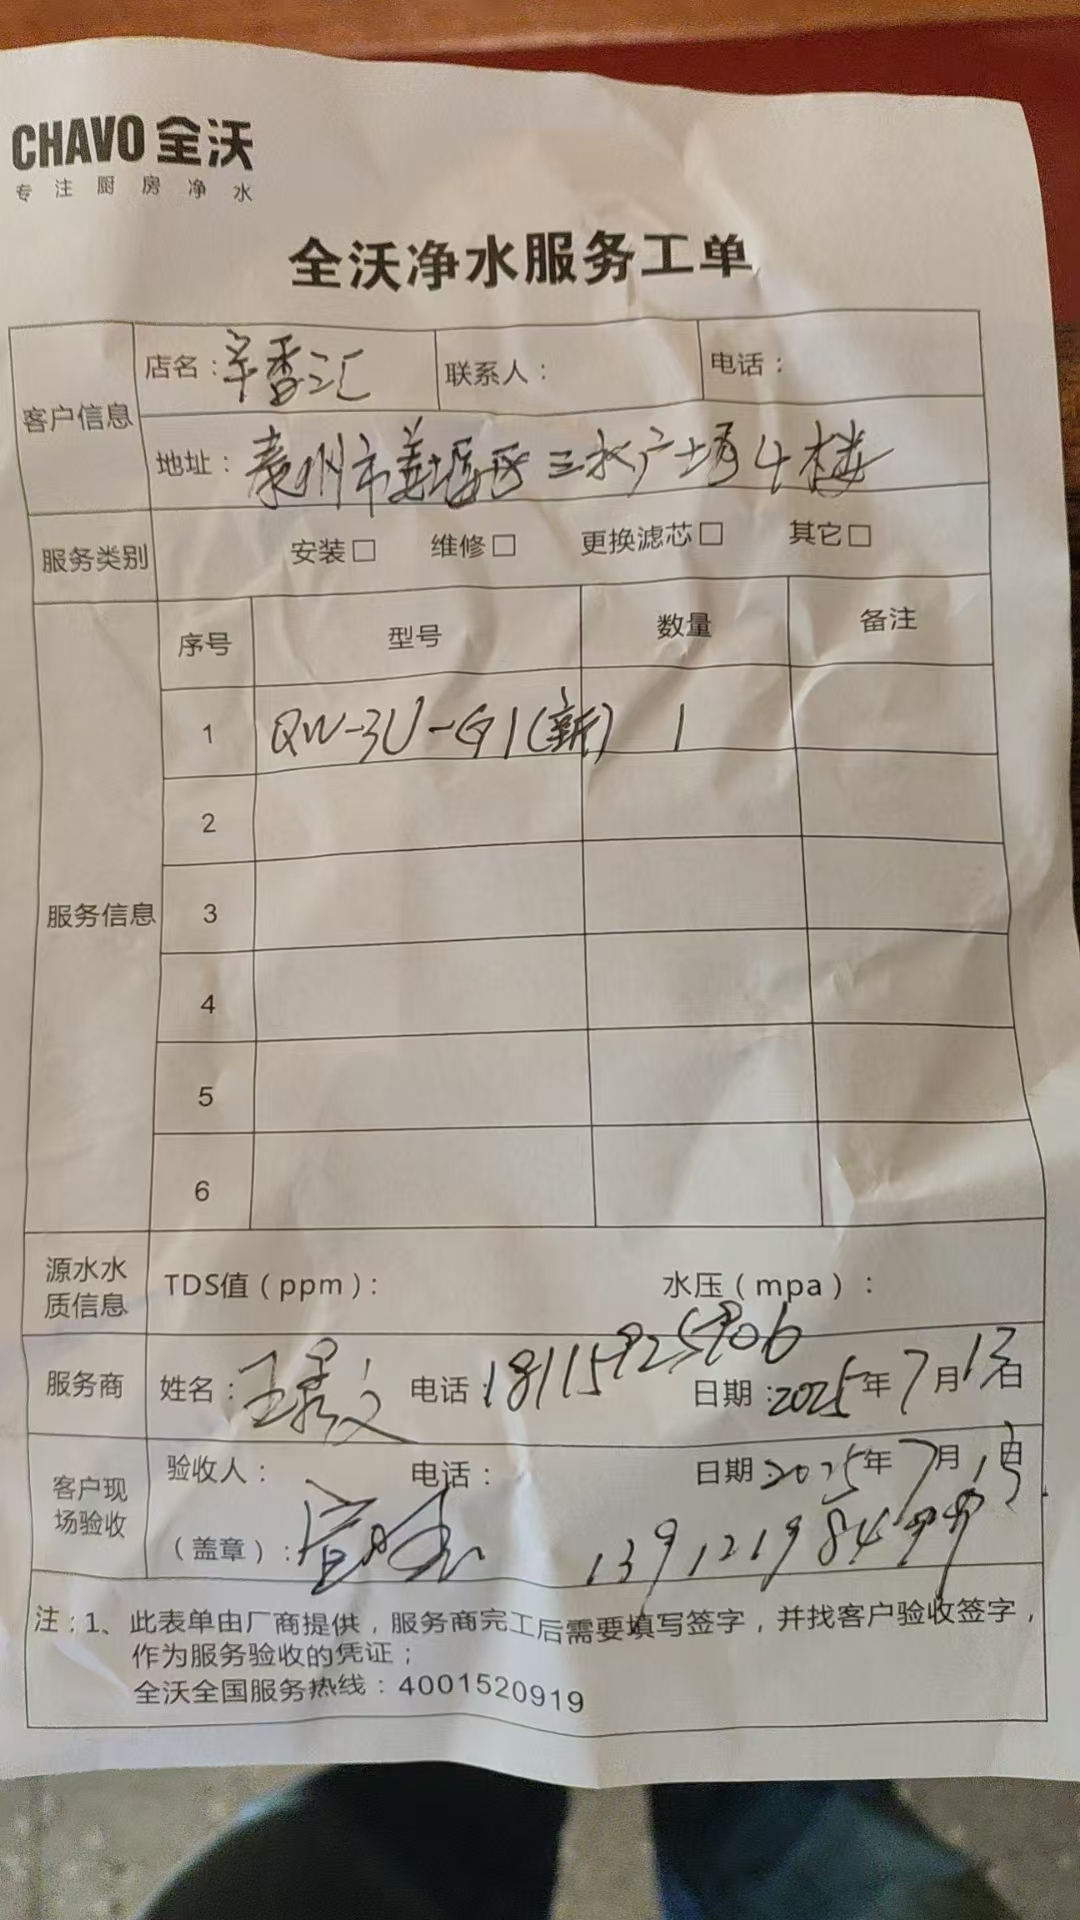 CHAVO 全沃
专注厨房净水
全沃净水服务工单
客户信息
店名：辛香汇
联系人：
电话：
地址：泰州市姜堰区三水广场4楼
服务类别
安装□ 维修□ 更换滤芯□ 其它□
服务信息
序号 型号 数量 备注
1 QW-3U-G1(新) 1
2
3
4
5
6
源水水质信息
TDS值（ppm）：
水压（mpa）：
服务商
姓名：王
电话：18115925906
日期：2025年7月13日
客户现场验收
验收人：
电话：
日期：2025年7月13日
（盖章）：
13912198499
注：1、此表单由厂商提供，服务商完工后需要填写签字，并找客户验收签字，
作为服务验收的凭证；
全沃全国服务热线：4001520919